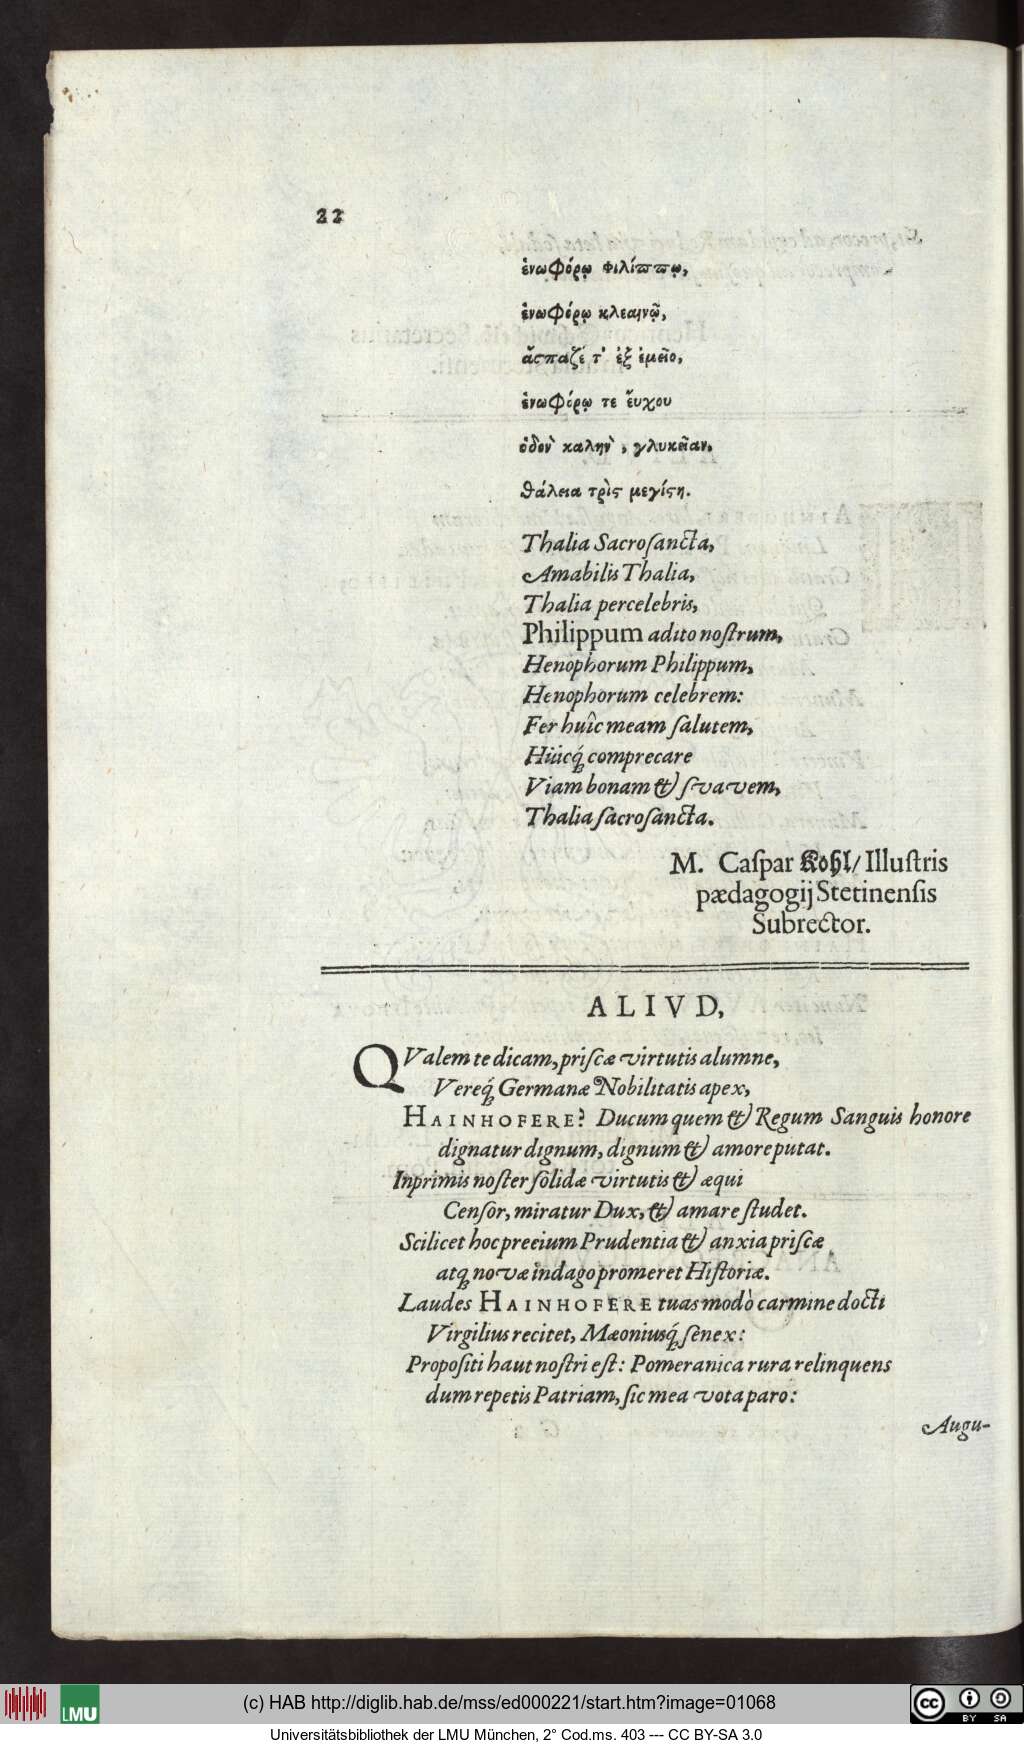 22
ἑνωφόρῳ Φιλίππῳ,
ἑνωφόρῳ κλεαινῷ,
ἄσπαζέ τ' ἐξ ἐμεῖο,
ἑνωφόρῳ τε ἔυχου
ὁδὸν καλὴν, γλυκεῖαν,
Θάλεια τρὶς μεγίςη.
Thalia Sacroſancta,
Amabilis Thalia,
Thalia percelebris,
Philippum adito noſtrum,
Henophorum Philippum,
Henophorum celebrem:
Fer huîc meam ſalutem,
Huicq́; comprecare
Viam bonam & ſvavem,
Thalia ſacroſancta.
M. Caſpar Kohl/ Illuſtris
pædagogij Stetinenſis
Subrector.
ALIVD,
QValem te dicam, priſcæ virtutis alumne,
Vereq́; Germanæ Nobilitatis apex,
HAINHOFERE? Ducum quem & Regum Sanguis honore
dignatur dignum, dignum & amore putat.
Inprimis noſter ſolidæ virtutis & æqui
Cenſor, miratur Dux, & amare ſtudet.
Scilicet hoc precium Prudentia & anxia priſcæ
atq; novæ indago promeret Hiſtoriæ.
Laudes HAINHOFERE tuas modò carmine docti
Virgilius recitet, Mæoniusq́; ſènex:
Propoſiti haut noſtri eſt: Pomeranica rura relinquens
dum repetis Patriam, ſic mea vota paro:
Augu-
LMU
(c) HAB http://diglib.hab.de/mss/ed000221/start.htm?image=01068
cc BY SA
Universitätsbibliothek der LMU München, 2° Cod.ms. 403 --- CC BY-SA 3.0